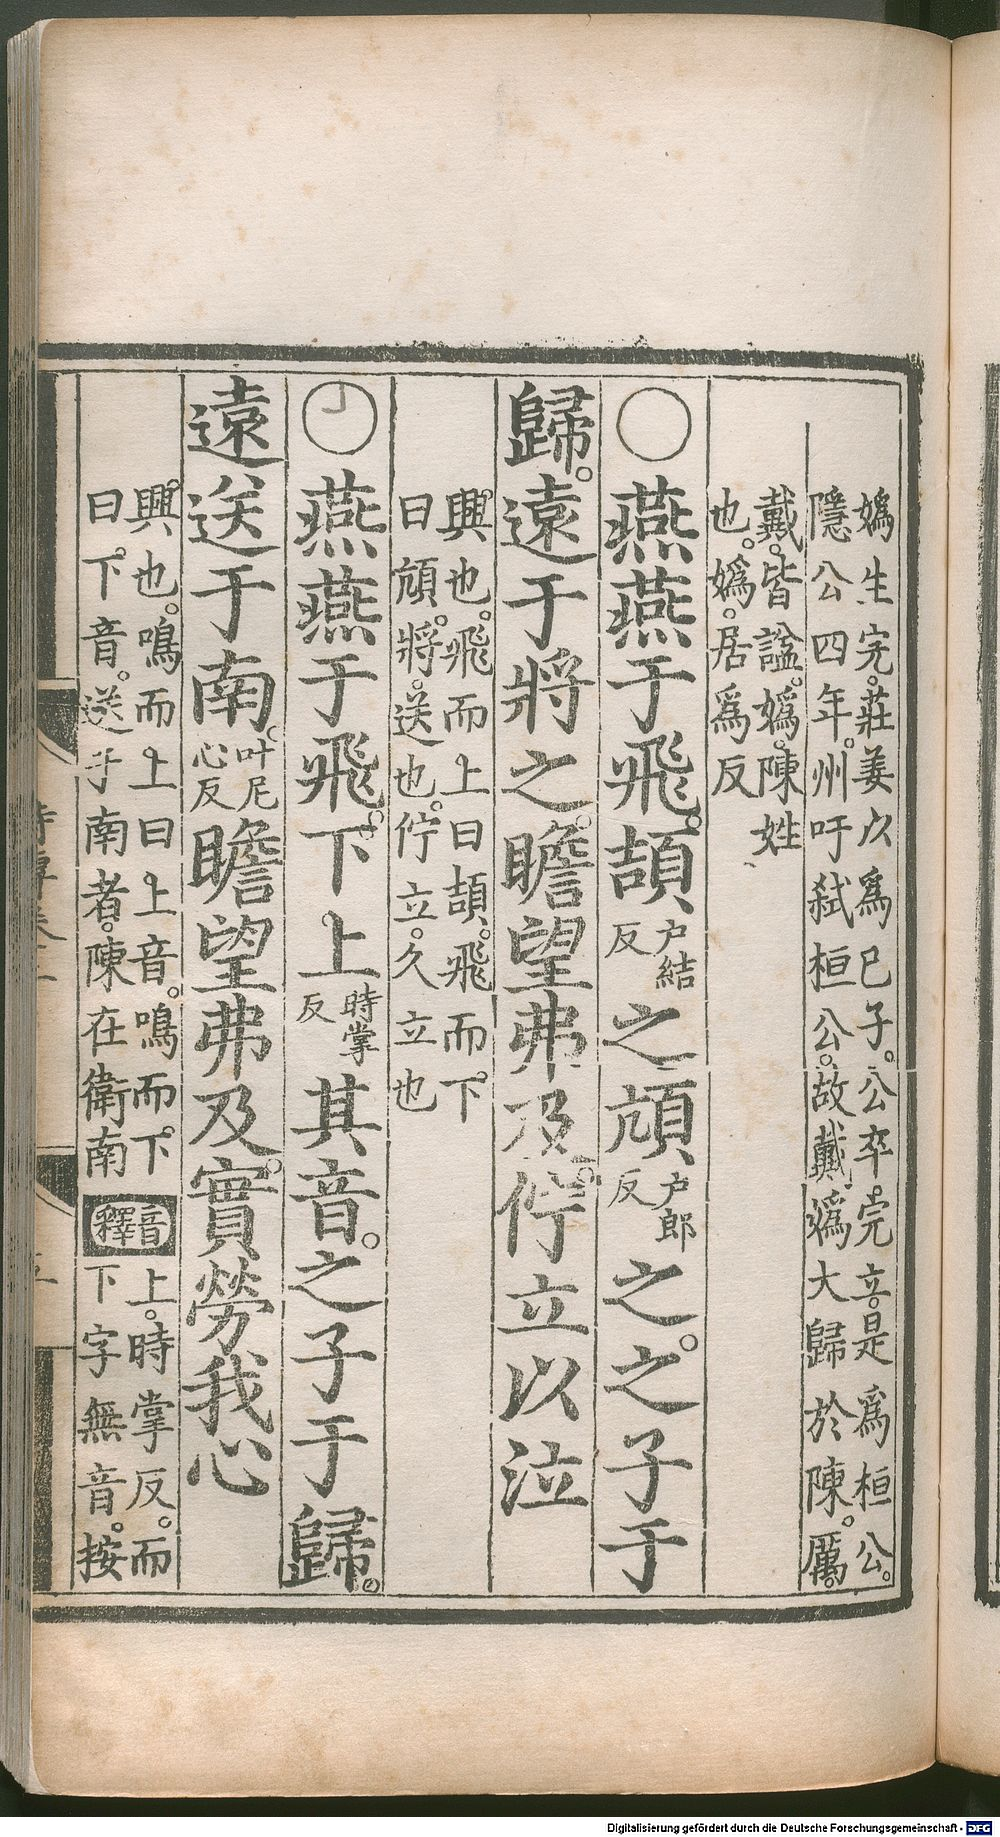 嬀生完。莊姜以爲已子。公卒。完立。是爲桓公。
隱公四年。州吁弑桓公。故戴嬀大歸於陳。厲。
戴。皆謚。嬀。陳姓
也。嬀。居爲反
○燕燕于飛。頡戶結反之頏戶郎反之。之子于
歸。遠于將之。瞻望弗及。佇立以泣
興也。飛而上曰頡。飛而下
曰頏。將。送也。佇立。久立也
○燕燕于飛。下上時掌反其音。之子于歸。
遠送于南。叶尼心反瞻望弗及。實勞我心
興也。鳴而上曰上音。鳴而下
曰下音。送于南者。陳在衛南
音釋
上。時掌反。而
下字無音。按
Digitalisierung gefördert durch die Deutsche Forschungsgemeinschaft - DFG